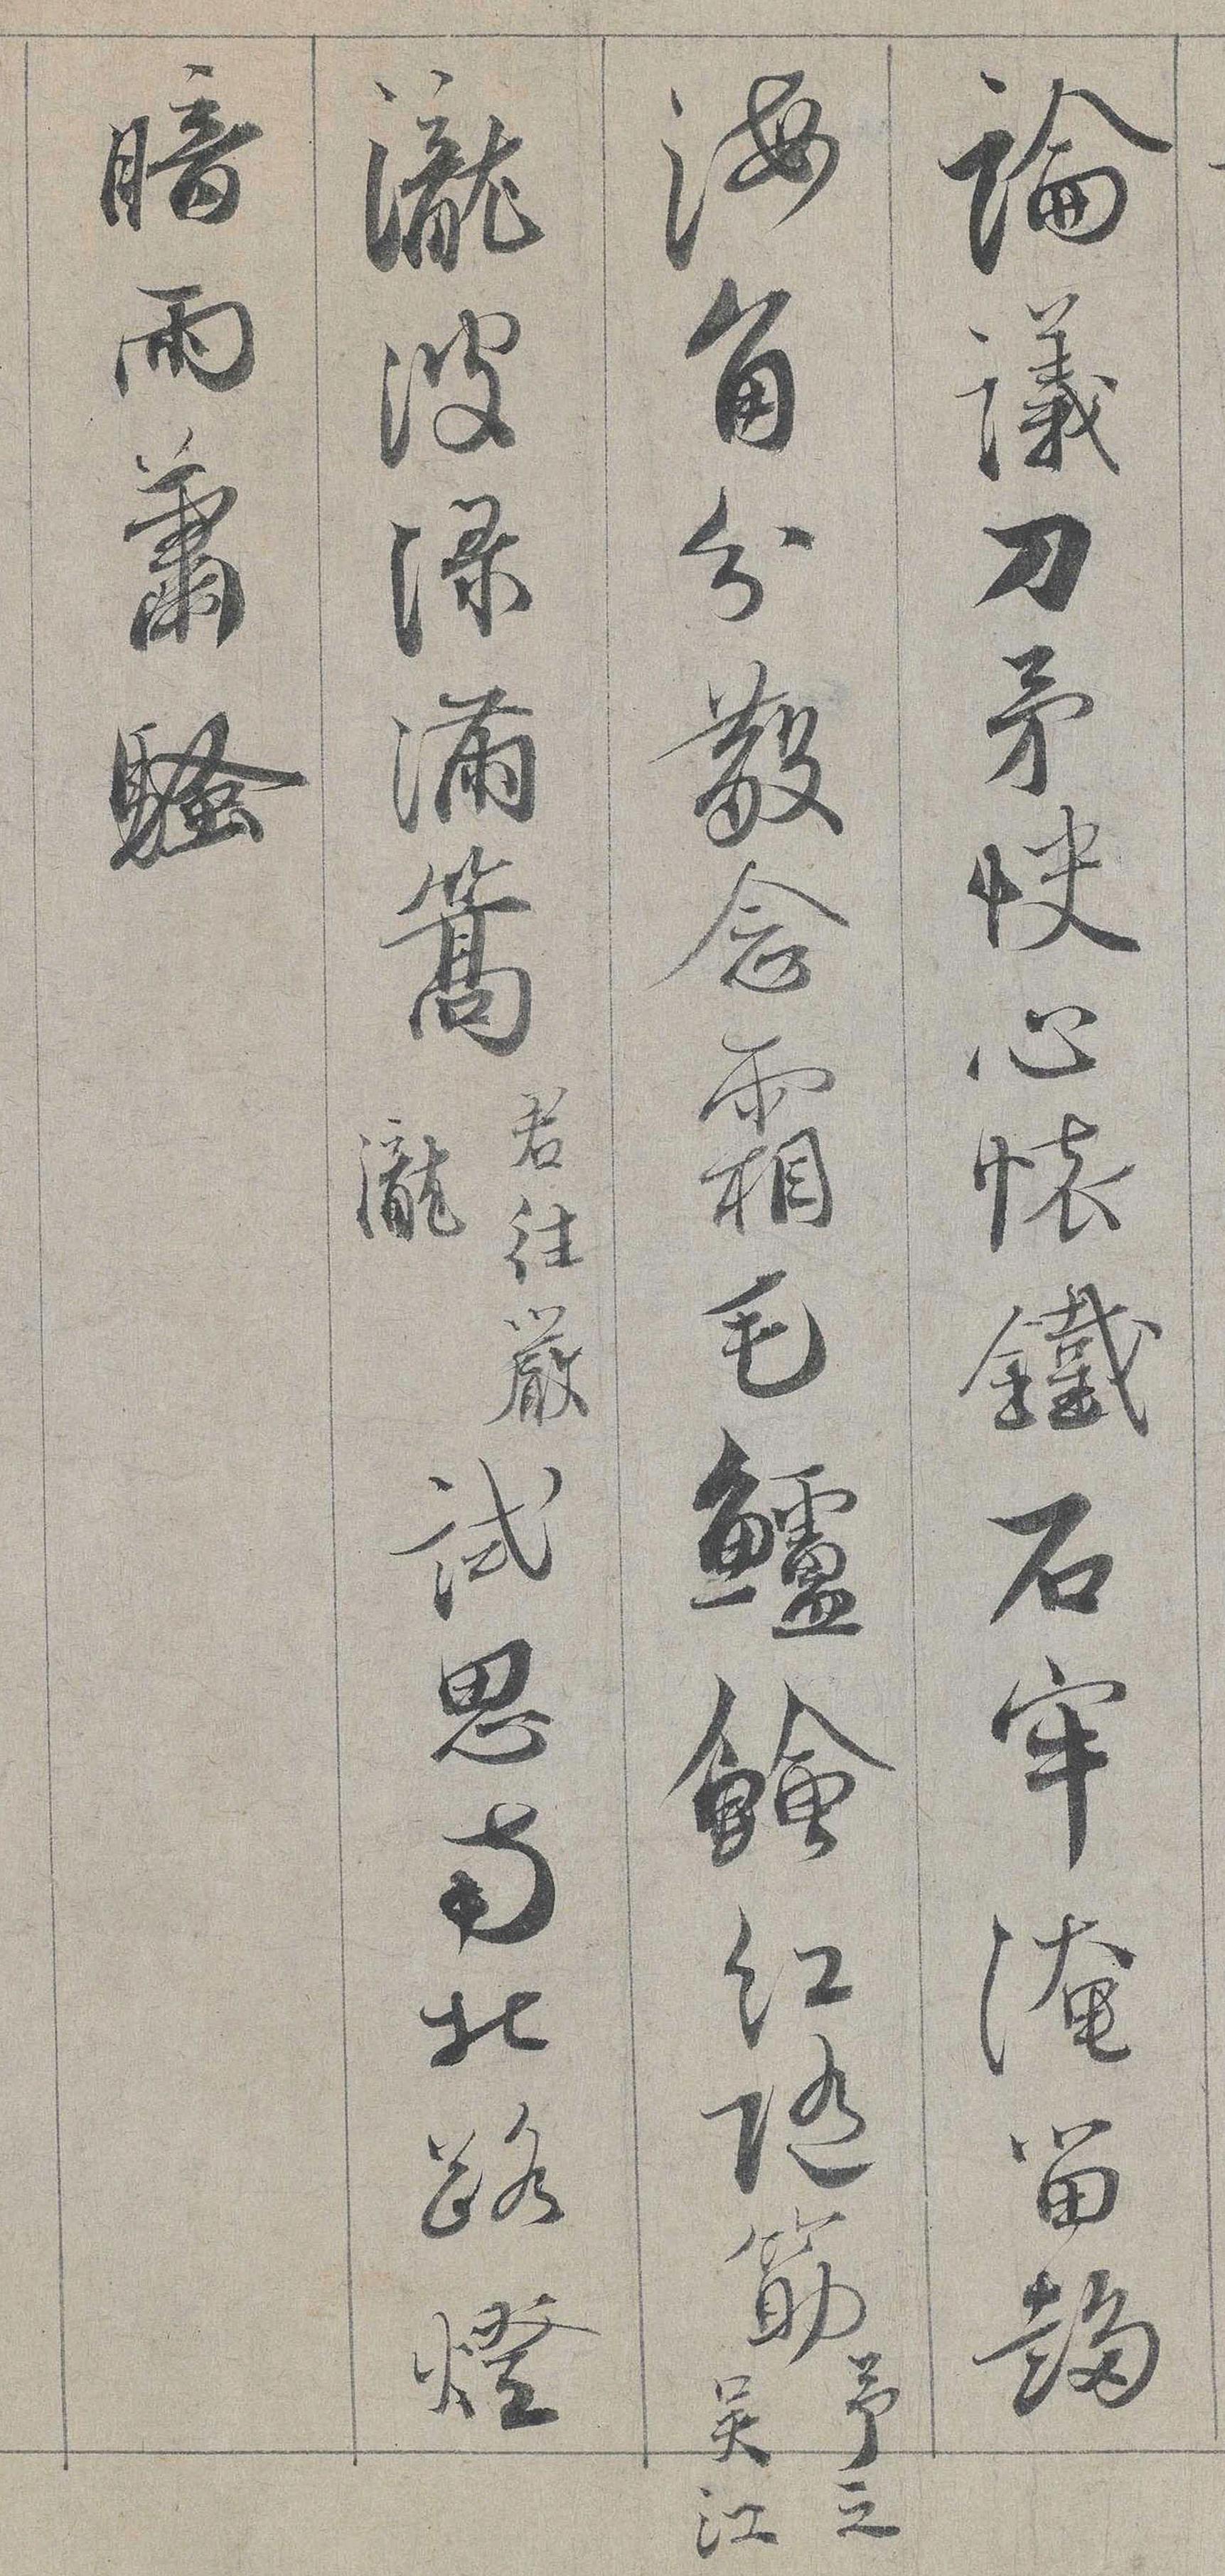 論議刀矛快心懷鐵石牢淹留趨
海角分散念霜毛鱸鱠紅隨筯予之吳江
瀧波淥滿篙君往嚴瀧試思南北路燈
暗雨蕭騷